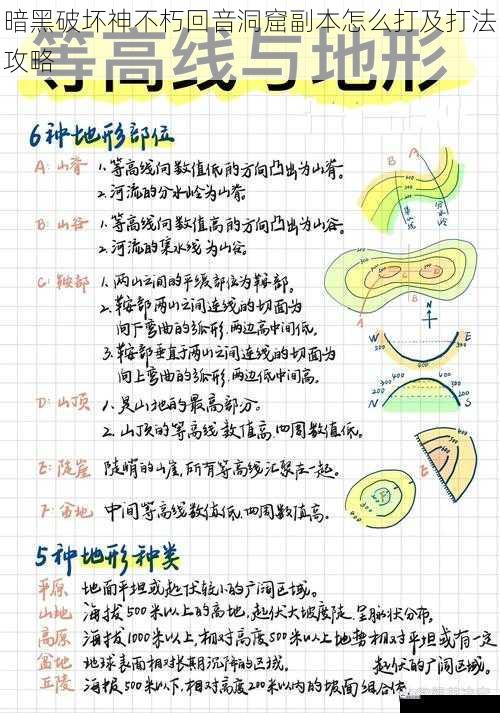 暗黑破坏神不朽回音洞窟副本怎么打及打法
攻略
等高线与地形
6种地形部位
A: 山脊 1. 等高线向数值低的方向凸出为山脊。
2. 河流的分水岭为山脊。
B: 山谷 1. 等高线向数值高的方向凸出为山谷。
2. 河流的集水线为山谷。
C: 鞍部 1. 两山之间的平缓部位为鞍部。
2. 鞍部两山之间连线的切面为
向下弯曲的弧形,两边高中间低。
3. 鞍部垂直于两山之间连线的切面为
向上弯曲的弧形,两边低中间高。
D: 山顶 1. 是山地的最高部分。
2. 山顶的等高线数值高,四周数值低。
E: 陡崖 陡峭的山崖,所有等高线汇聚在一起。
F: 盆地 中间等高线数值低,四周数值高。
5种地形种类
平原 地面平坦或起伏较小的广阔区域。
山地 海拔500米以上的高地,起伏大坡度陡,呈脉状分布。
高原 海拔1000米以上,相对高度500米以上地势相对平坦或有一定
起伏的广阔区域。
盆地 地球表面相对长期沉降的区域。
丘陵 海拔500米以下,相对高度200米以内的坡面组合体
B
A
集水线
分水岭
A
B
C
N
W
E
400
300
400
300
200
N
S
E
F